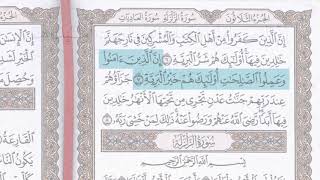 الجزء الثلاثون
سورة الزلزلة سورة العاديات
إِنَّ ٱلَّذِينَ كَفَرُوا۟ مِنْ أَهْلِ ٱلْكِتَـٰبِ وَٱلْمُشْرِكِينَ فِى نَارِ جَهَنَّمَ
خَـٰلِدِينَ فِيهَآ أُو۟لَـٰٓئِكَ هُمْ شَرُّ ٱلْبَرِيَّةِ ٦ إِنَّ ٱلَّذِينَ ءَامَنُوا۟
وَعَمِلُوا۟ ٱلصَّـٰلِحَـٰتِ أُو۟لَـٰٓئِكَ هُمْ خَيْرُ ٱلْبَرِيَّةِ ٧ جَزَآؤُهُمْ
عِندَ رَبِّهِمْ جَنَّـٰتُ عَدْنٍ تَجْرِى مِن تَحْتِهَا ٱلْأَنْهَـٰرُ خَـٰلِدِينَ
فِيهَآ أَبَدًا رَّضِىَ ٱللَّهُ عَنْهُمْ وَرَضُوا۟ عَنْهُ ذَٰلِكَ لِمَنْ خَشِىَ رَبَّهُۥ ٨
سُورَةُ الزَّلْزَلَةِ
بِسْمِ ٱللَّهِ ٱلرَّحْمَـٰنِ ٱلرَّحِيمِ
إِنَّ ٱلْإِنسَـٰنَ
ٱلْخَيْرِ
وَحُصِّلَ
ٱلْقَارِعَةُ
يَكُونُ ٱلنَّاسُ